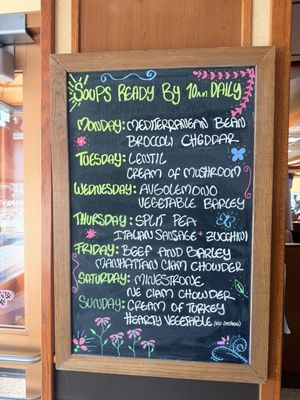 SOUPS READY BY 10AM DAILY
MONDAY: MEDITERRANEAN BEAN
BROCCOLI CHEDDAR
TUESDAY: LENTIL
CREAM OF MUSHROOM
WEDNESDAY: AVGOLEMONO
VEGETABLE BARLEY
THURSDAY: SPLIT PEA
ITALIAN SAUSAGE + ZUCCHINI
FRIDAY: BEEF AND BARLEY
MANHATTAN CLAM CHOWDER
SATURDAY: MINESTRONE
NE CLAM CHOWDER
SUNDAY: CREAM OF TURKEY
HEARTY VEGETABLE